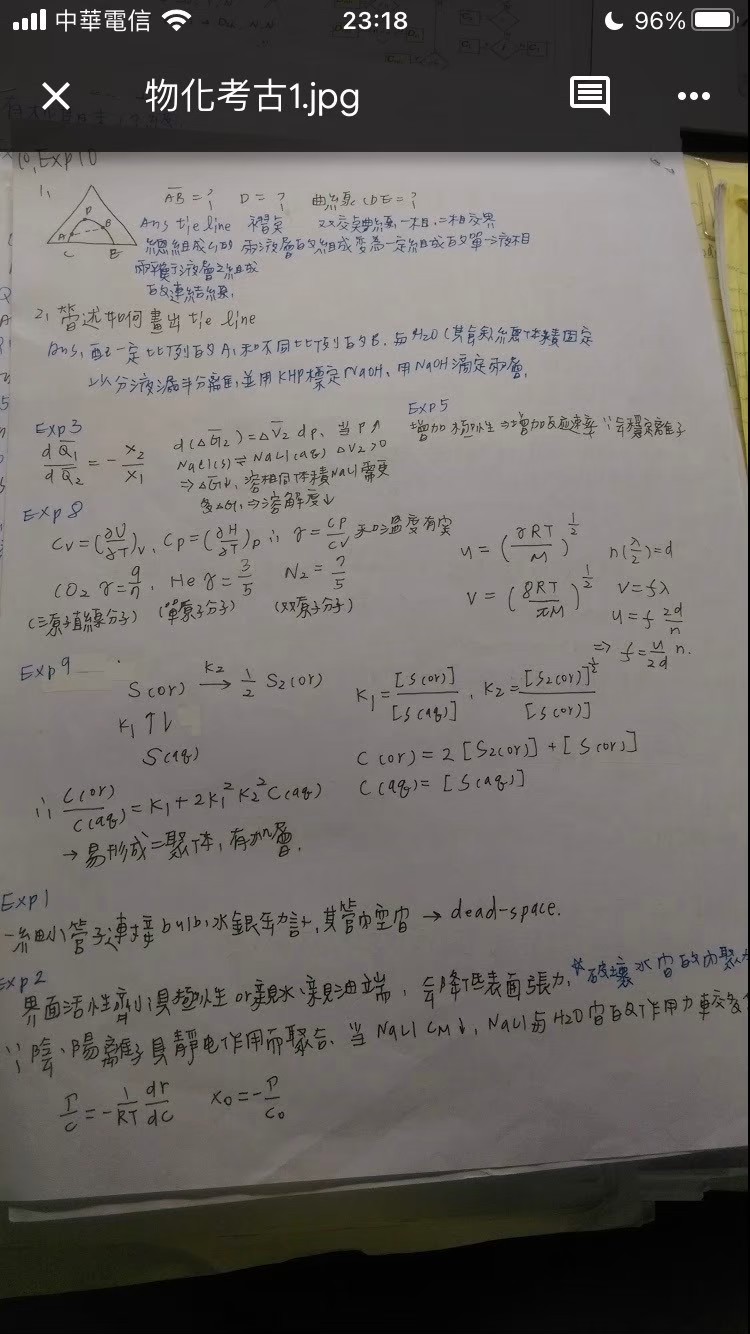 中華電信 23:18 96%
物化考古1.jpg
10, Exp10
1, AB = ? D = ? 曲線CDE = ?
D
A B
C E
Ans tie line 褶點 雙交點曲線, 一相, 二相交界
總組成 兩液層的組成變為一定組成的單一液相
兩液層之組成
的連結線,
2, 簡述如何畫出 tie line
Ans, 配一定比例的A, 和不同比例的B. 與 H2O (其餘) 總体積固定
以分液漏斗分離, 並用 KHP 標定 NaOH, 用 NaOH 滴定兩層,
Exp3
dQ̅1/dQ̅2 = - x2/x1
d(ΔG̅2) = ΔV̅2 dp, 當 P↑
NaCl(s) ⇌ NaCl(aq) ΔV2>0
⇒ ΔG↓, 溶相同体積NaCl需要
多ΔG, ⇒ 溶解度↓
Exp5
增加極性 ⇒ 增加反應速率 ∵ 會穩定離子
Exp8
Cv = (∂U/∂T)v, Cp = (∂H/∂T)p ∴ γ = CP/CV 和溫度有關
CO2 γ = 9/7, He γ = 3/5 N2 = 7/5
(三原子直線分子) (單原子分子) (双原子分子)
u = (γRT/M)^1/2 n(λ/2) = d
v = (8RT/πM)^1/2 v = fλ
u = f 2d/n
⇒ f = u/2d n.
Exp9
S(or) K2→ 1/2 S2(or)
K1 ↑↓
S(aq)
K1 = [S(or)]/[S(aq)], K2 = [S2(or)]^1/2/[S(or)]
C(or) = 2[S2(or)] + [S(or)]
C(aq) = [S(aq)]
∴ C(or)/C(aq) = K1 + 2K1²K2²C(aq)
→ 易形成二聚体, 有機層.
Exp1
一細小管子連接 bulb, 水銀壓力計, 其管內空間 → dead-space.
Exp2
界面活性劑具極性 or 親水, 親油端, 會降低表面張力, *破壞水間的內聚
∵ 陰、陽離子具靜电作用而聚合. 當 NaCl CM↓, NaCl 與 H2O 間的作用力較多
Γ/C = - 1/RT dr/dc x0 = - Γ/C0